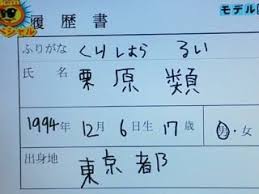 モデル
シャル
履歴書
ふりがな くりはら るい
氏名 栗原 類
1994年 12月 6日生 17歳 男・女
出身地 東京都